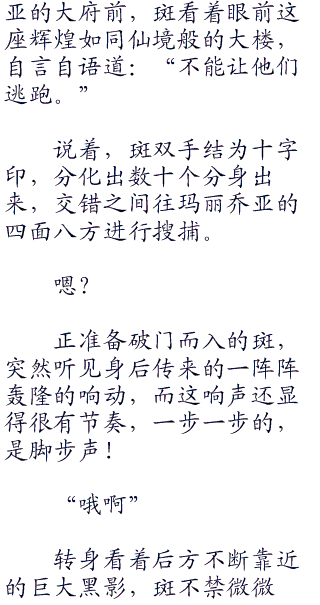 亚的大府前，斑看着眼前这
座辉煌如同仙境般的大楼，
自言自语道：“不能让他们
逃跑。”
说着，斑双手结为十字
印，分化出数十个分身出
来，交错之间往玛丽乔亚的
四面八方进行搜捕。
嗯？
正准备破门而入的斑，
突然听见身后传来的一阵阵
轰隆的响动，而这响声还显
得很有节奏，一步一步的，
是脚步声！
“哦啊”
转身看着后方不断靠近
的巨大黑影，斑不禁微微